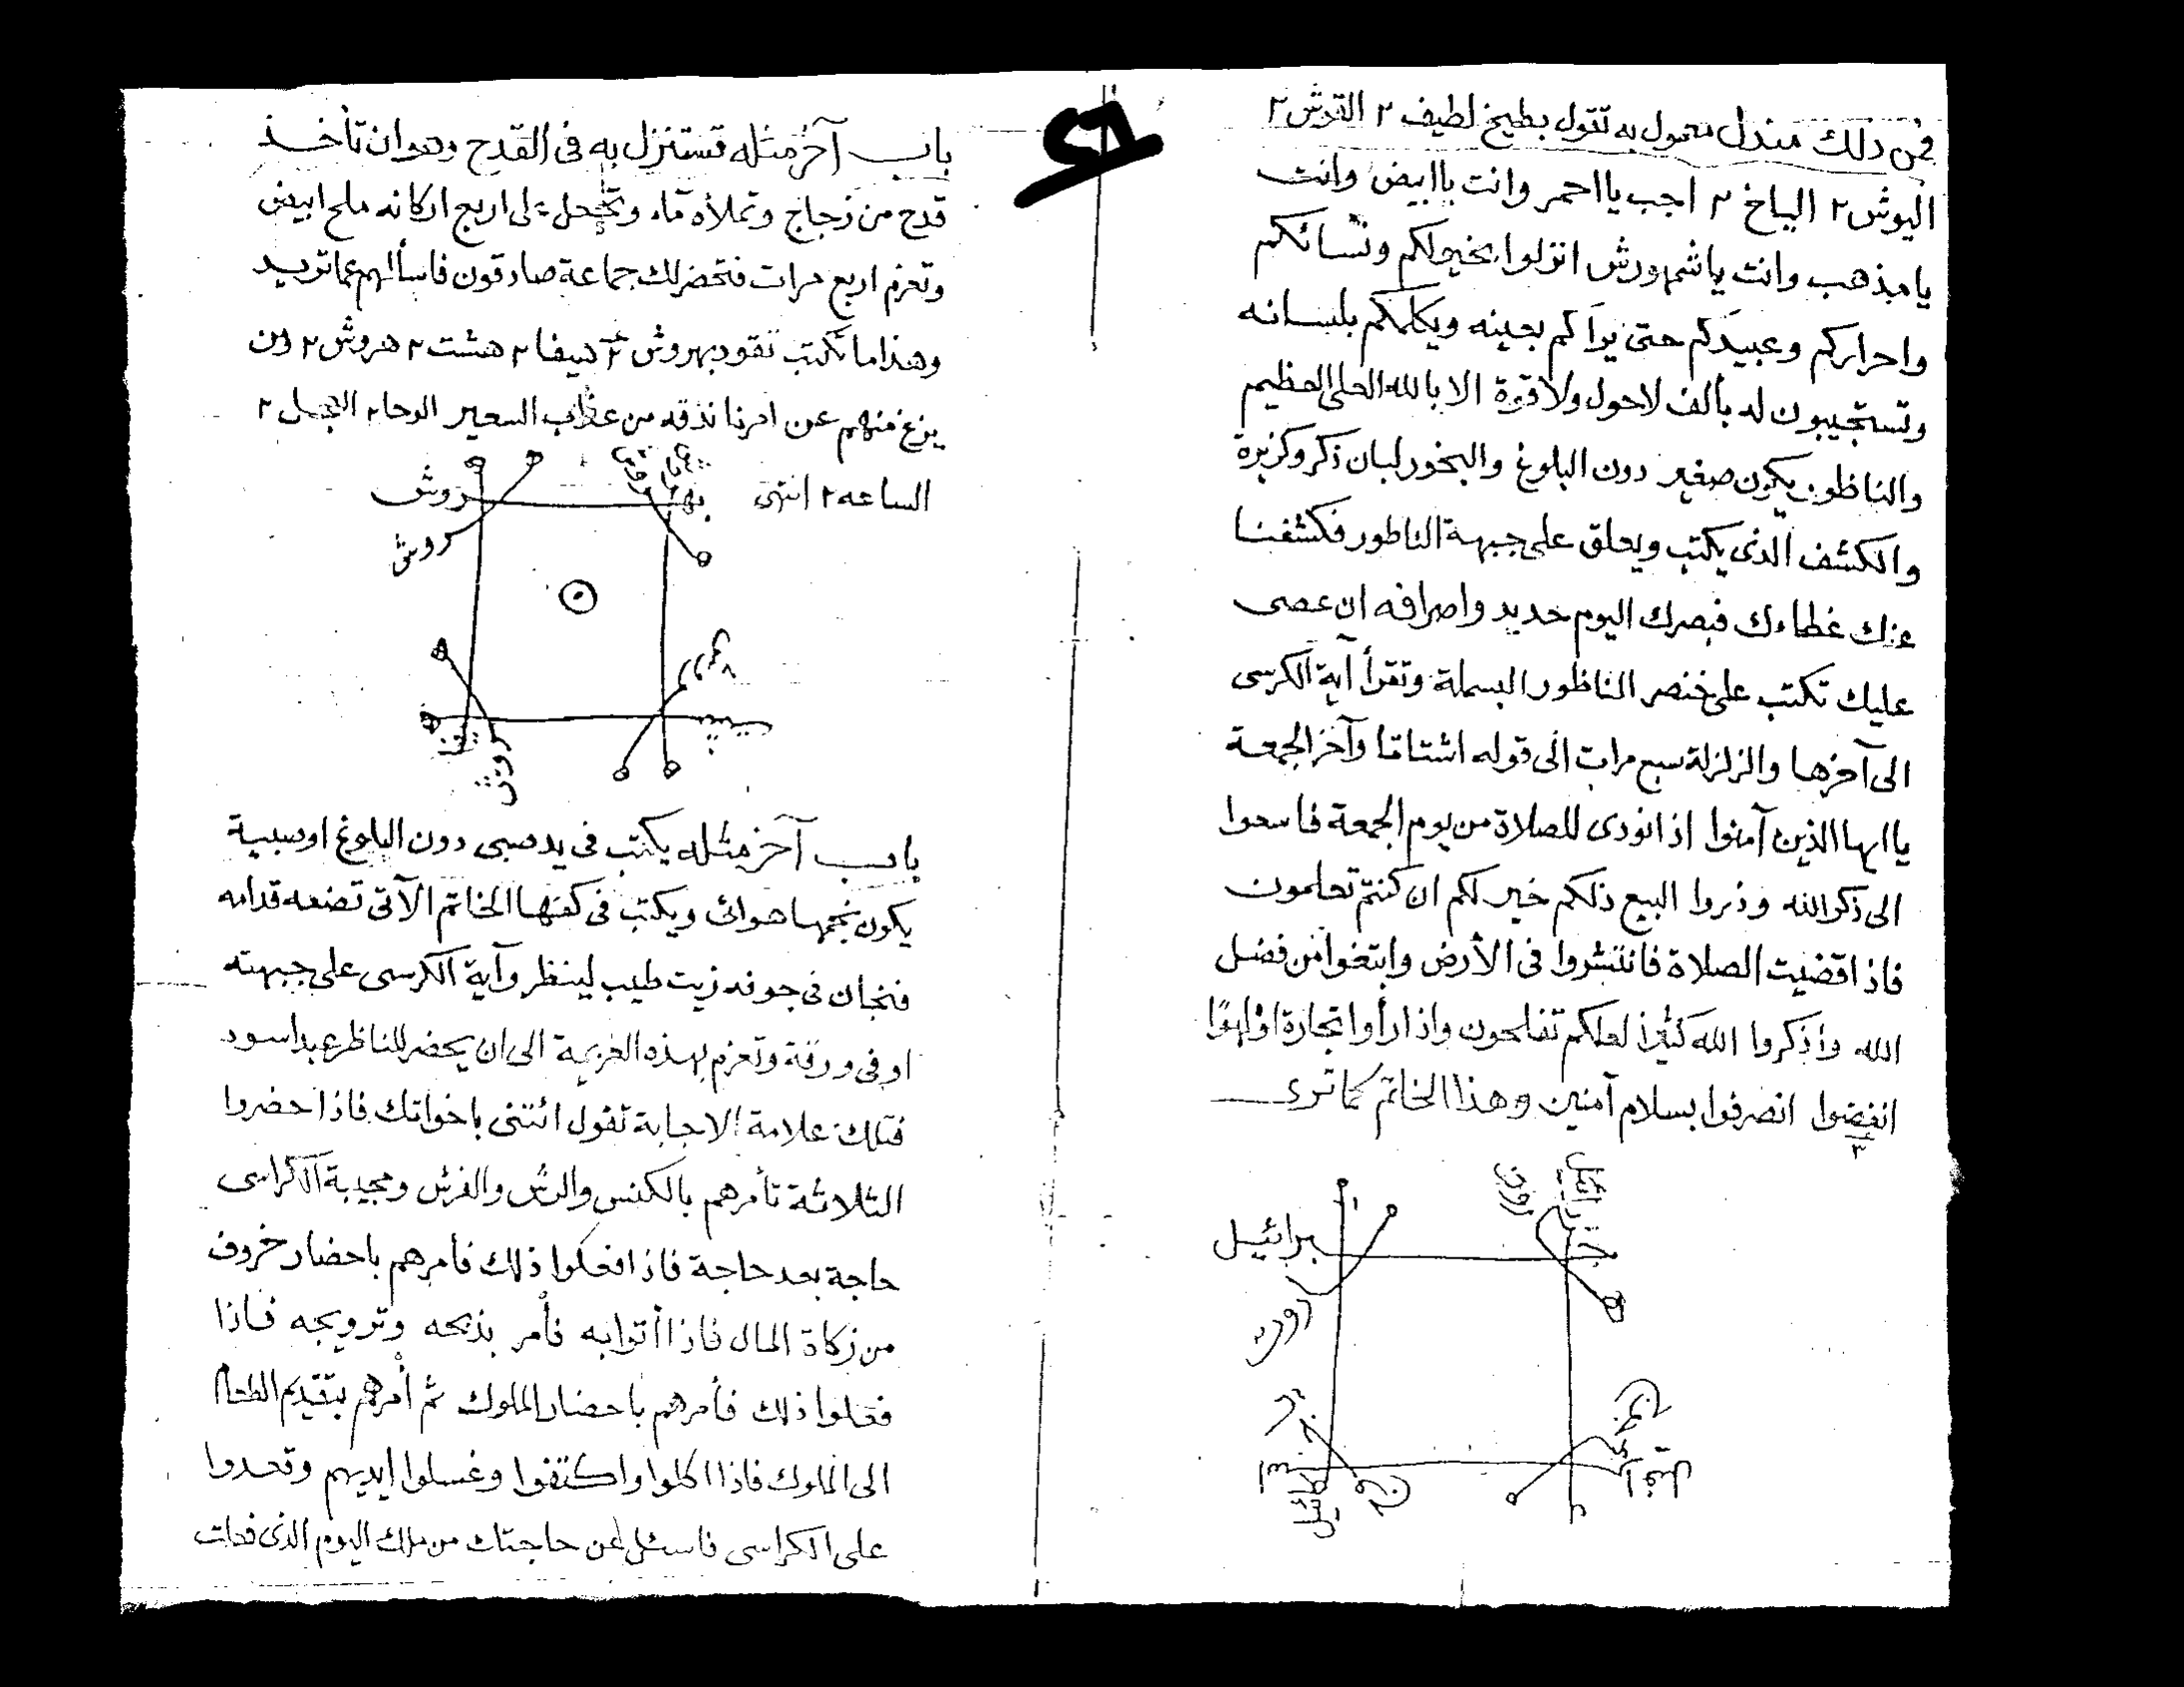 فمن ذلك مندل معمول به تقول بطيخ لطيف ٢ القوش ٢
اليوش ٢ الياخ ٢ اجب يا احمر وانت يا ابيض وانت
يا مذهب وانت يا شمهورش انزلوا بخيولكم ونسائكم
واحراركم وعبيدكم حتى يراكم بعينه ويكلمكم بلسانه
وتستجيبون له بألف لاحول ولا قوة الا بالله العلى العظيم
والناظور يكون صغير دون البلوغ والبخور لبان ذكر وكزبرة
والكشف الذى يكتب ويعلق على جبهة الناظور فكشفنا
عنك غطاءك فبصرك اليوم حديد واصرافه ان عصى
عليك تكتب على خنصر الناظور البسملة وتقرأ آية الكرسى
الى آخرها والزلزلة سبع مرات الى قوله اشتاتا وآخر الجمعة
يا ايها الذين آمنوا اذا نودى للصلاة من يوم الجمعة فاسعوا
الى ذكر الله وذروا البيع ذلكم خير لكم ان كنتم تعلمون
فاذا قضيت الصلاة فانتشروا فى الأرض وابتغوا من فضل
الله وأذكروا الله كثيرا لعلكم تفلحون واذا رأوا تجارة اولهوًا
انفضوا انصرفوا بسلام آمنين وهذا الخاتم كما ترى
٣
باب آخر مثله تستنزل به فى القدح وهو ان تأخذ
قدح من زجاج وتملأه ماء وتجعل على اربع اركانه ملح ابيض
وتعزم اربع مرات فتحضر لك جماعة صادقون فاسألهم عما تريد
وهذا ما تكتب تقود بهروش ٢ هيفا ٢ هشت ٢ هروش ٢ ومن
يزغ منهم عن امرنا نذقه من عذاب السعير الوحا ٢ العجل ٢
الساعه ٢ انتهى
روش
روش
روش
باب آخر مثله يكتب فى يد صبى دون البلوغ او صبية
يكون نجمها هوائى ويكتب فى كفها الخاتم الآتى تضعه قدامه
فنجان فى جوفه زيت طيب لينظر وآية الكرسى على جبهته
او فى ورقة وتعزم بهذه العزيمة الى ان يحضر للناظر عبد اسود
فتلك علامة الاجابة تقول ائتنى باخواتك فاذا حضروا
الثلاثة تأمرهم بالكنس والرش والفرش ومجيبة الكراسى
حاجة بعد حاجة فاذا فعلوا ذلك فامرهم باحضار خروف
من زكاة المال فاذا أتوا به فأمر بذبحه وترويجه فاذا
فعلوا ذلك فأمرهم باحضار الملوك ثم أمرهم بتقديم الطعام
الى الملوك فاذا اكلوا واكتفوا وغسلوا ايديهم وقعدوا
على الكراسى فاسئل عن حاجتك من ملك اليوم الذى فعلت